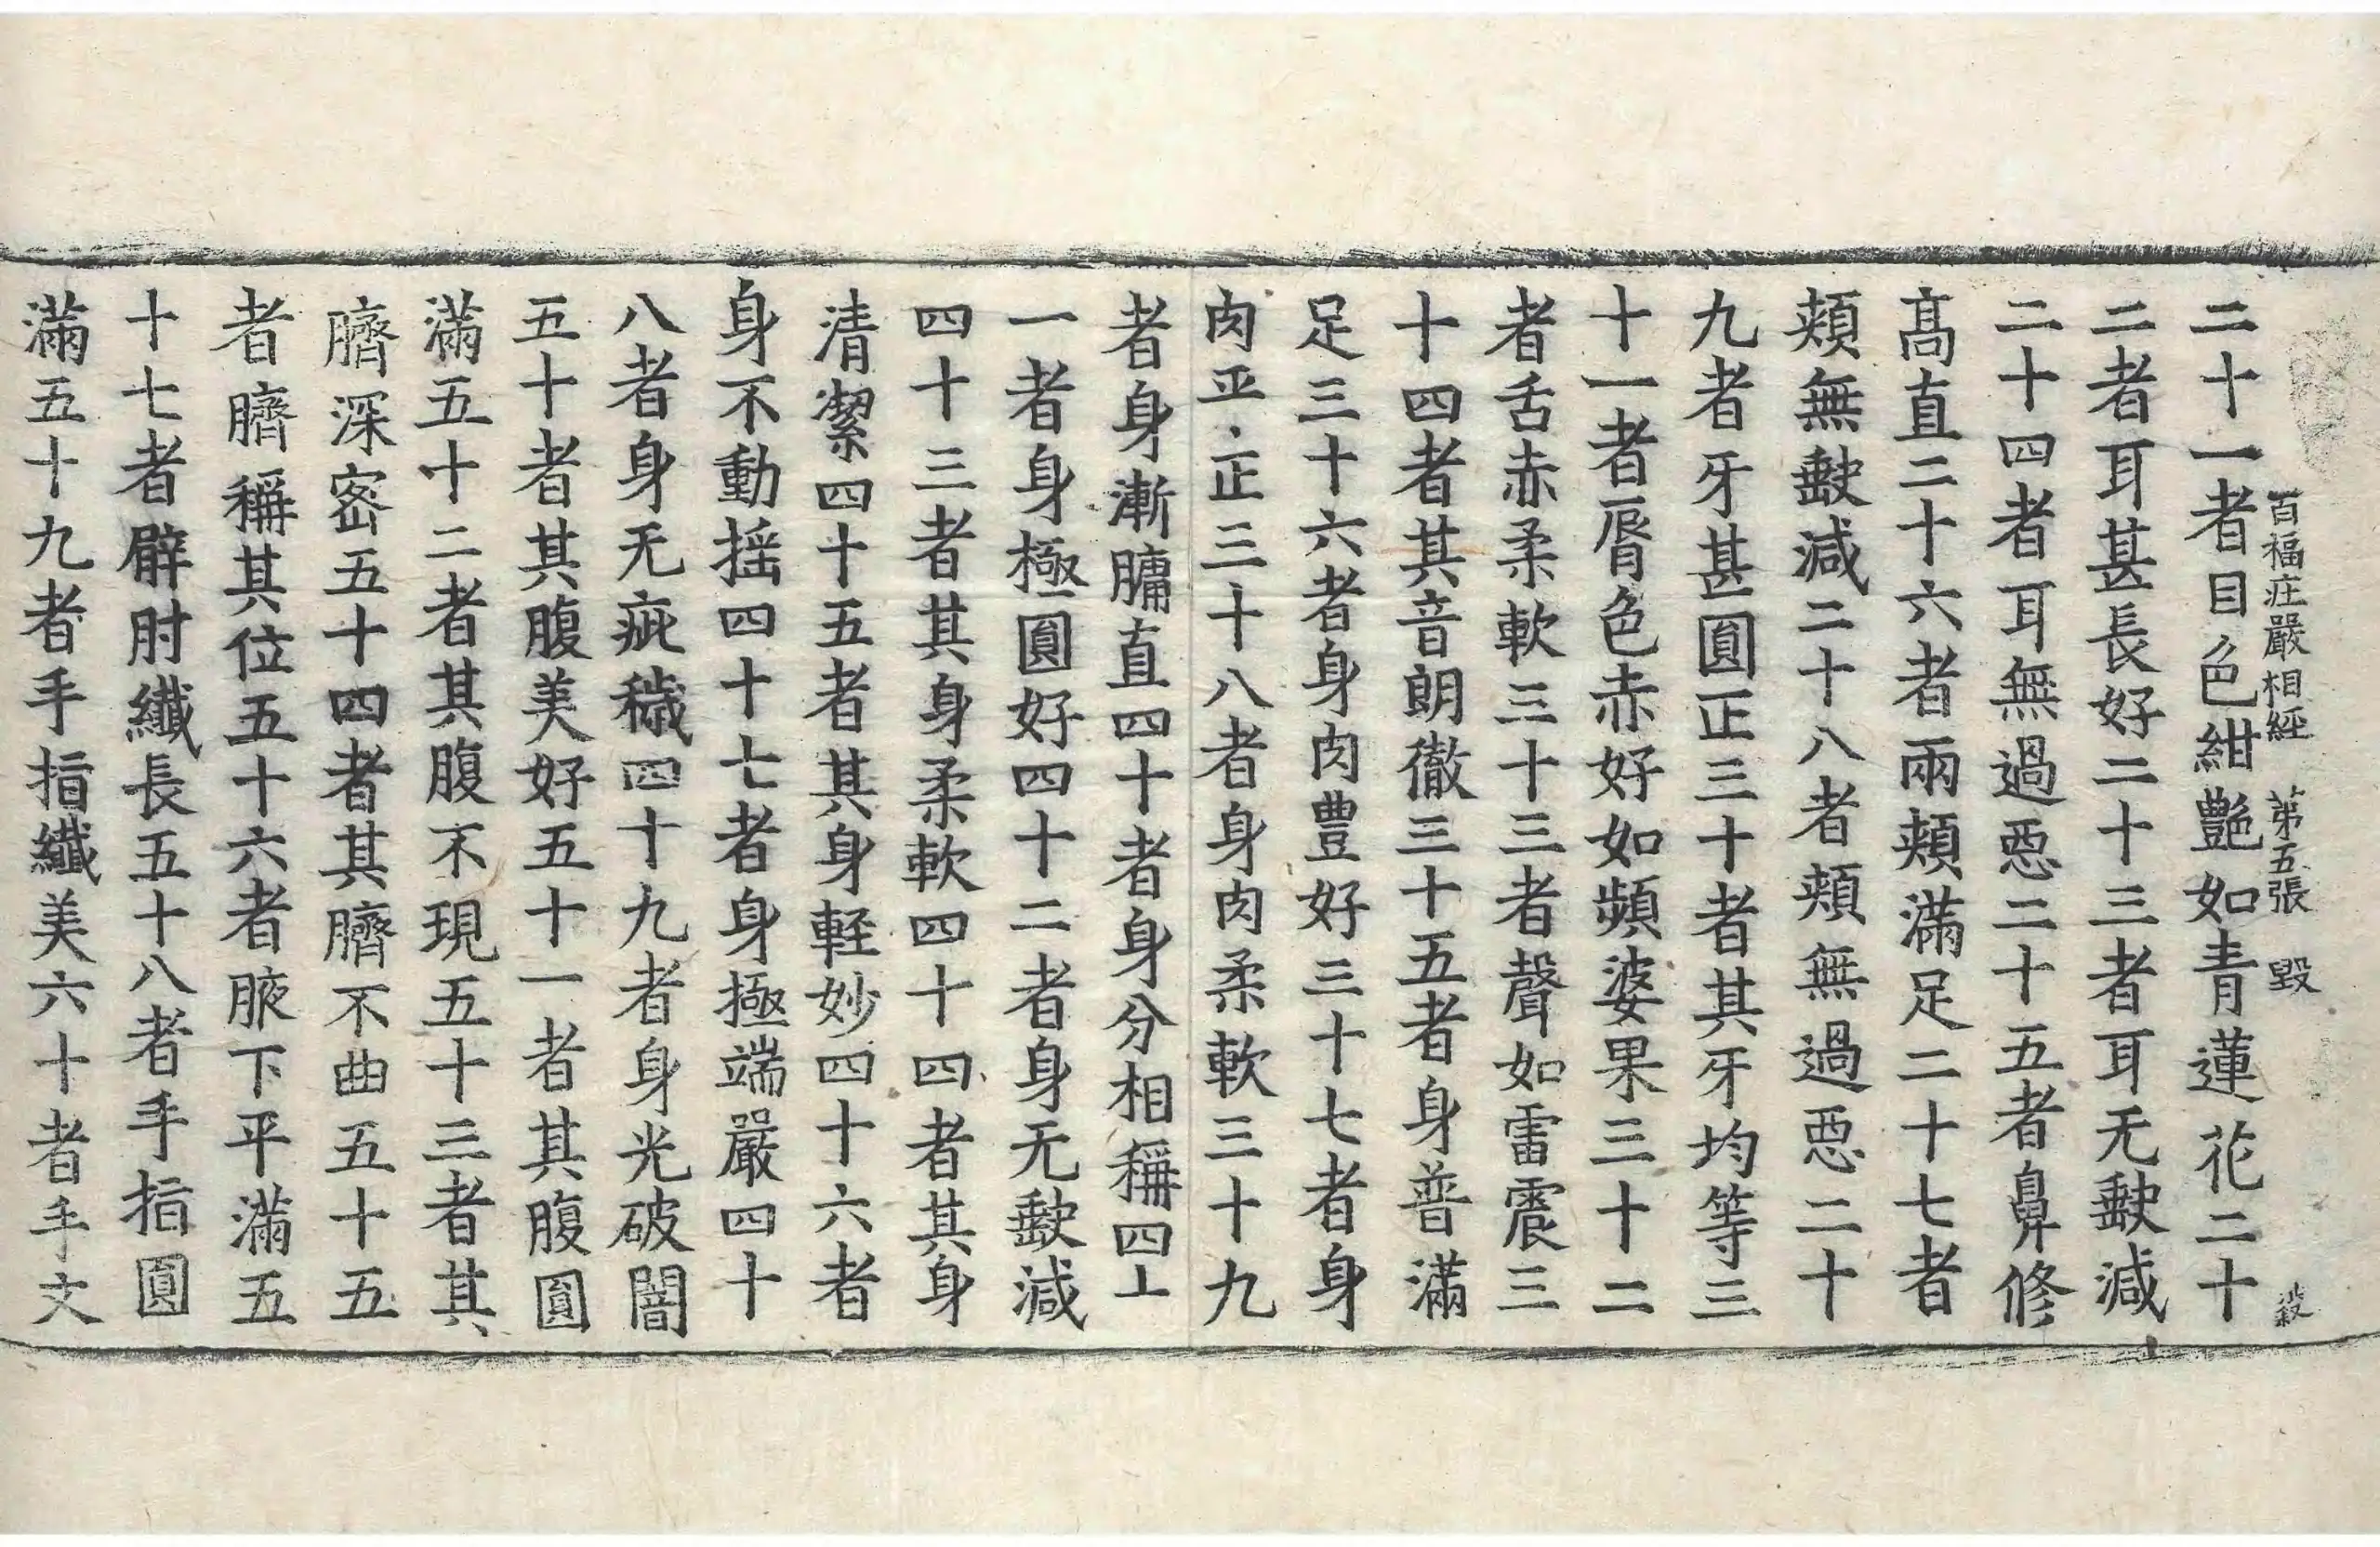 百福庄嚴相經 第五張 毀
二十一者目色紺艷如青蓮花二十
二者耳甚長好二十三者耳无𡙇減
二十四者耳無過惡二十五者鼻修
髙直二十六者兩頰滿足二十七者
頰無𡙇減二十八者頰無過惡二十
九者牙甚圓正三十者其牙均等三
十一者脣色赤好如頻婆果三十二
者舌赤柔軟三十三者聲如雷震三
十四者其音朗徹三十五者身普滿
足三十六者身肉豊好三十七者身
肉平正三十八者身肉柔軟三十九
者身漸𦟛直四十者身分相稱四十
一者身極圓好四十二者身无𡙇減
四十三者其身柔軟四十四者其身
清潔四十五者其身軽妙四十六者
身不動揺四十七者身極端嚴四十
八者身无疵穢四十九者身光破闇
五十者其腹美好五十一者其腹圓
滿五十二者其腹不現五十三者其
臍深密五十四者其臍不曲五十五
者臍稱其位五十六者腋下平滿五
十七者臂肘纖長五十八者手指圓
滿五十九者手指纖美六十者手文